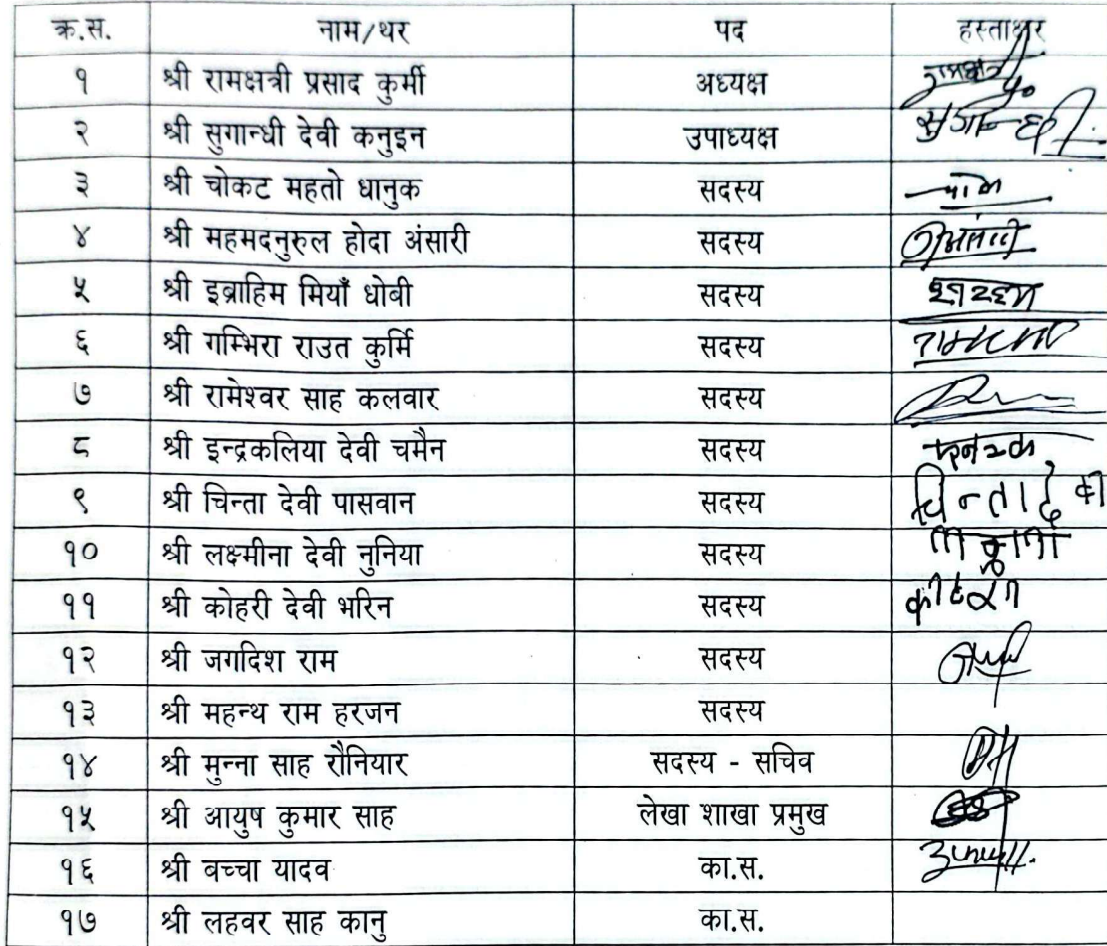 क्र.स. नाम/थर पद हस्ताक्षर
१ श्री रामक्षत्री प्रसाद कुर्मी अध्यक्ष
२ श्री सुगान्धी देवी कनुइन उपाध्यक्ष सुगान्धी
३ श्री चोकट महतो धानुक सदस्य
४ श्री महमदनुरुल होदा अंसारी सदस्य
५ श्री इब्राहिम मियाँ धोबी सदस्य
६ श्री गम्भिरा राउत कुर्मि सदस्य
७ श्री रामेश्वर साह कलवार सदस्य
८ श्री इन्द्रकलिया देवी चमैन सदस्य
९ श्री चिन्ता देवी पासवान सदस्य चिन्ता देवी
१० श्री लक्ष्मीना देवी नुनिया सदस्य
११ श्री कोहरी देवी भरिन सदस्य
१२ श्री जगदिश राम सदस्य
१३ श्री महन्थ राम हरजन सदस्य
१४ श्री मुन्ना साह रौनियार सदस्य - सचिव
१५ श्री आयुष कुमार साह लेखा शाखा प्रमुख
१६ श्री बच्चा यादव का.स.
१७ श्री लहवर साह कानु का.स.